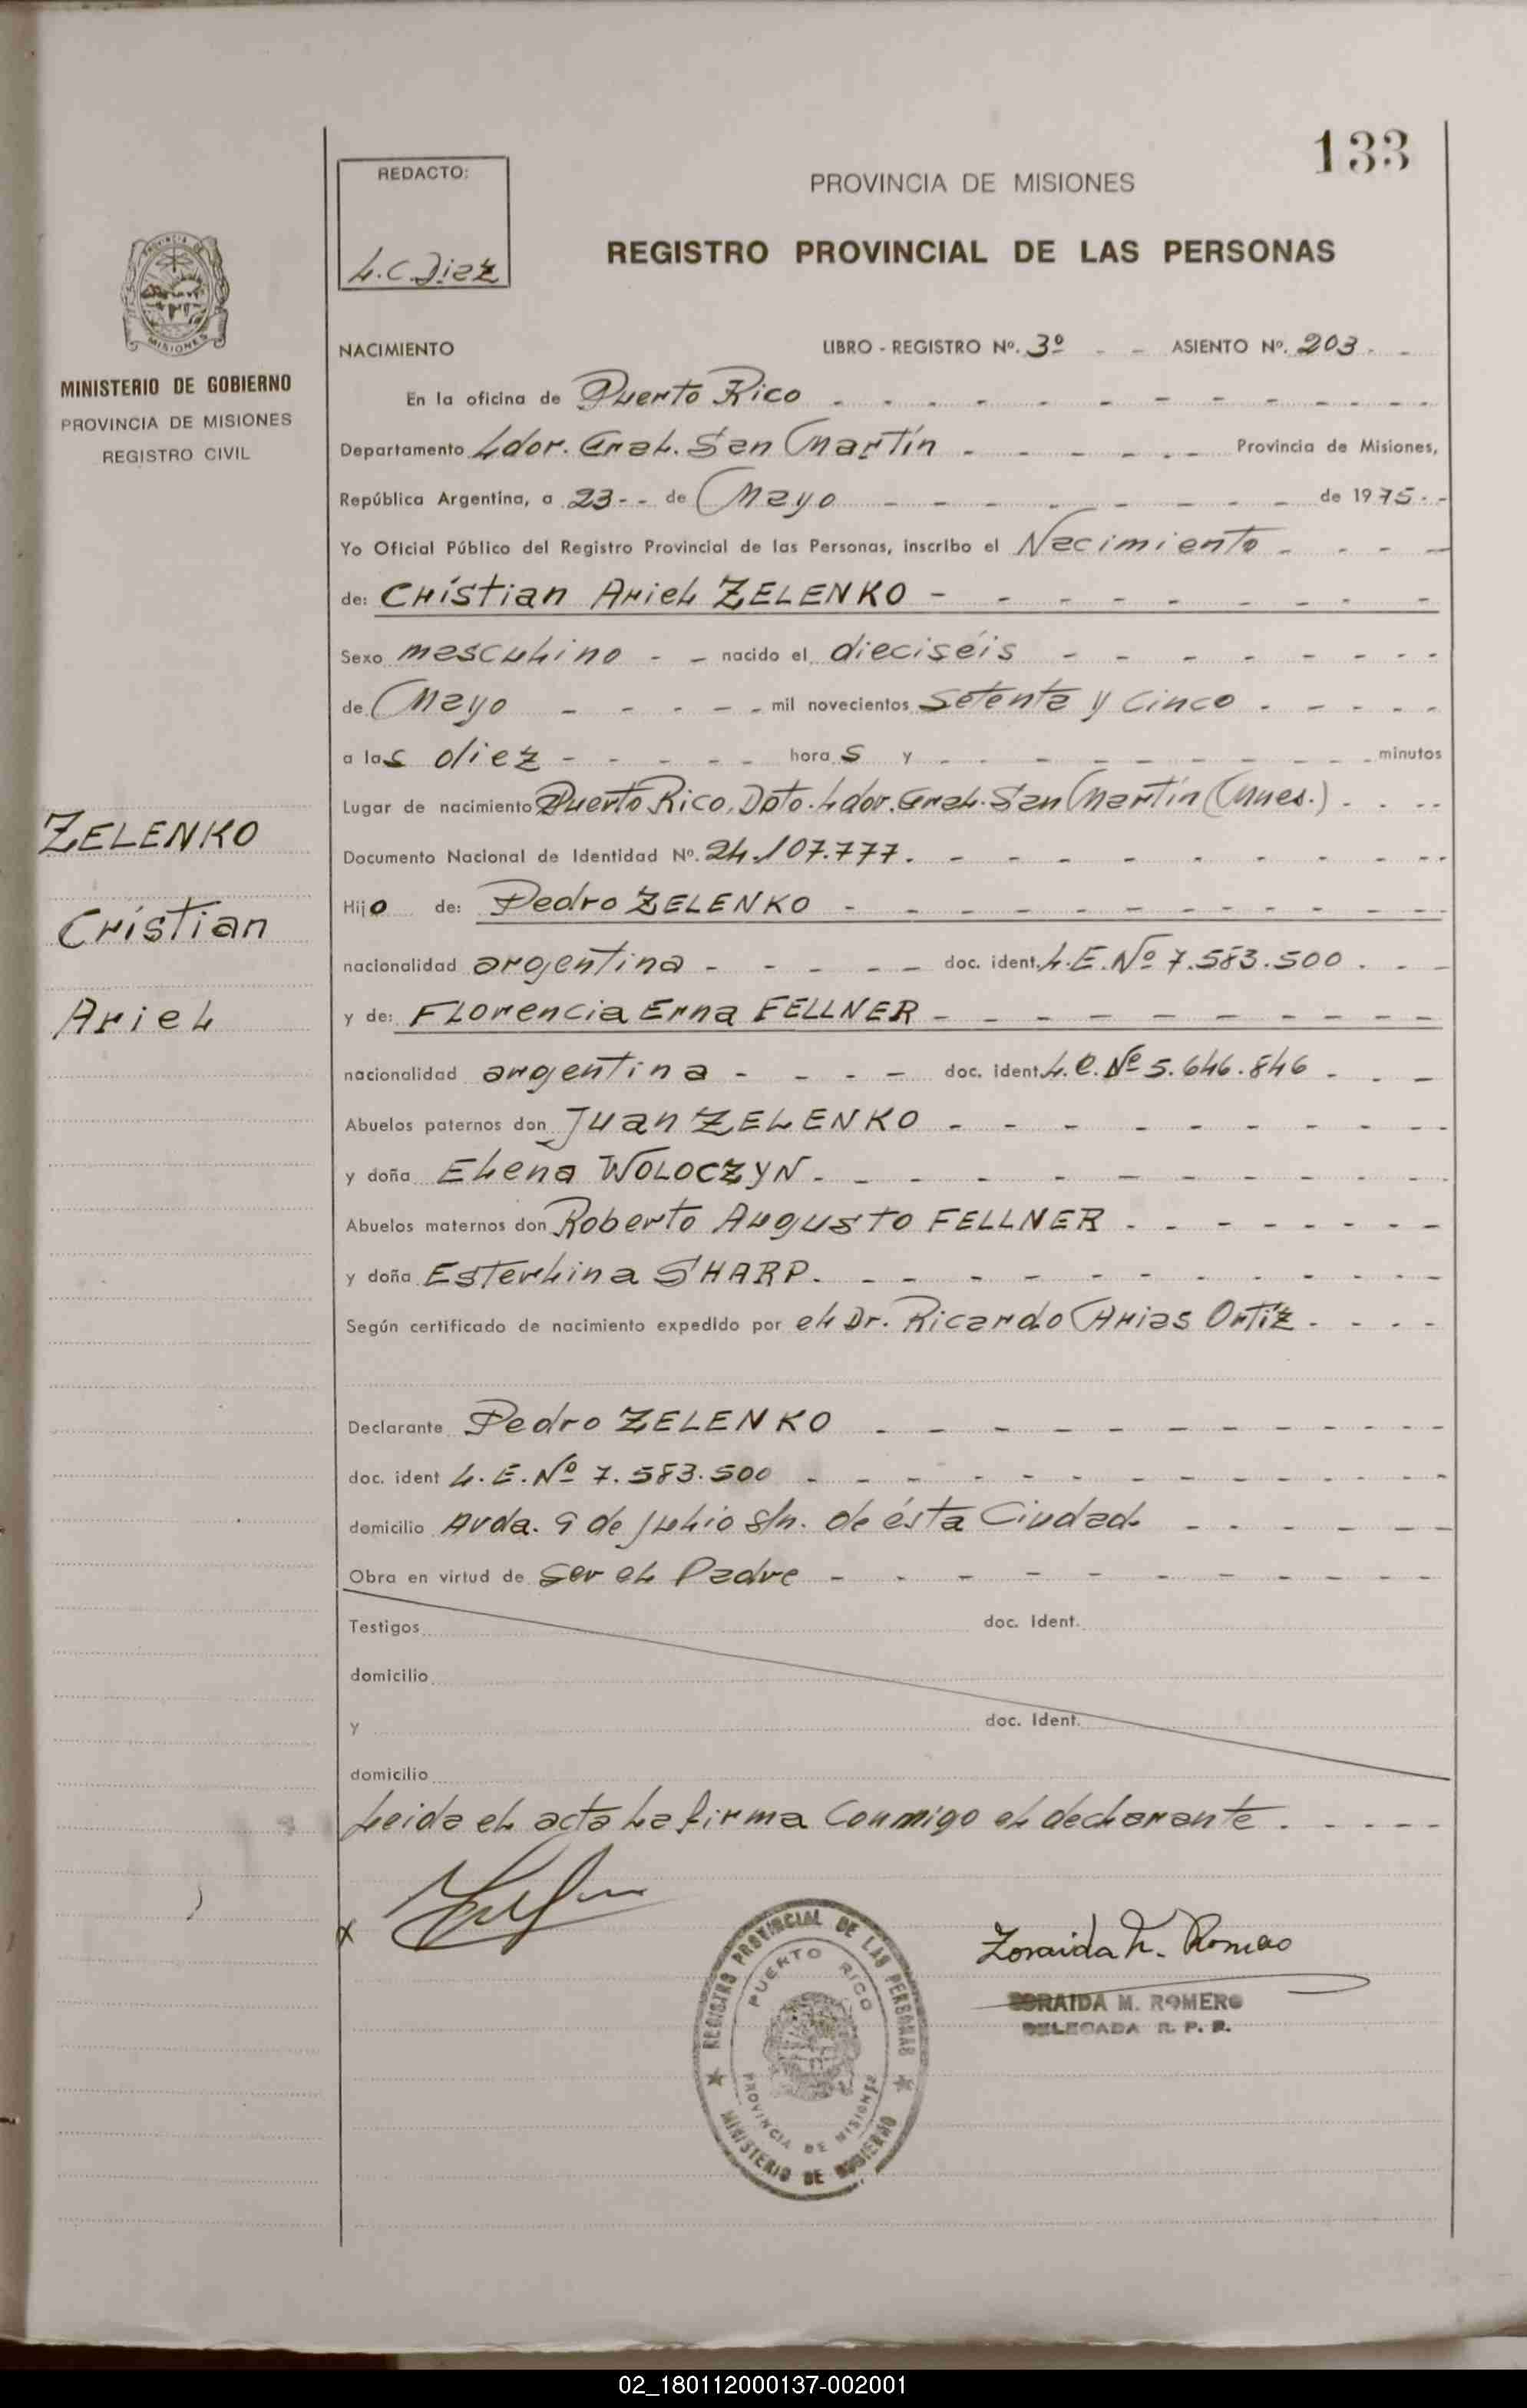 133
REDACTO:
L.C.Diez
PROVINCIA DE MISIONES
REGISTRO PROVINCIAL DE LAS PERSONAS
PROVINCIA DE
MISIONES
MINISTERIO DE GOBIERNO
PROVINCIA DE MISIONES
REGISTRO CIVIL
NACIMIENTO LIBRO - REGISTRO Nº. 3º - - ASIENTO Nº. 203. -
En la oficina de Puerto Rico
Departamento Ldor. Gral. San Martín Provincia de Misiones,
República Argentina, a 23-- de Mayo de 1975.-
Yo Oficial Público del Registro Provincial de las Personas, inscribo el Nacimiento
de: Cristian Ariel ZELENKO
Sexo masculino - - nacido el dieciséis
de Mayo mil novecientos setenta y cinco
a las diez horas y minutos
Lugar de nacimiento Puerto Rico, Dpto. Ldor. Gral. San Martín (Mnes.)
Documento Nacional de Identidad Nº. 24.107.777.
Hijo de: Pedro ZELENKO
nacionalidad argentina doc. ident. L.E.Nº 7.583.500
y de: Florencia Erna FELLNER
nacionalidad argentina doc. ident. L.C.Nº 5.646.846
Abuelos paternos don Juan ZELENKO
y doña Elena WOLOCZYN.
Abuelos maternos don Roberto Augusto FELLNER
y doña Esterlina SHARP.
Según certificado de nacimiento expedido por el Dr. Ricardo Arias Ortíz
Declarante Pedro ZELENKO
doc. ident L.E.Nº 7.583.500
domicilio Avda. 9 de Julio s/n. de ésta Ciudad
Obra en virtud de ser el Padre
Testigos doc. Ident.
domicilio
y doc. Ident.
domicilio
Leida el acta la firma conmigo el declarante.
ZELENKO
Cristian
Ariel
x
REGISTRO PROVINCIAL DE LAS PERSONAS
PUERTO RICO
PROVINCIA DE MISIONES
MINISTERIO DE GOBIERNO
Zoraida M. Romero
ZORAIDA M. ROMERO
DELEGADA R. P. P.
02_180112000137-002001